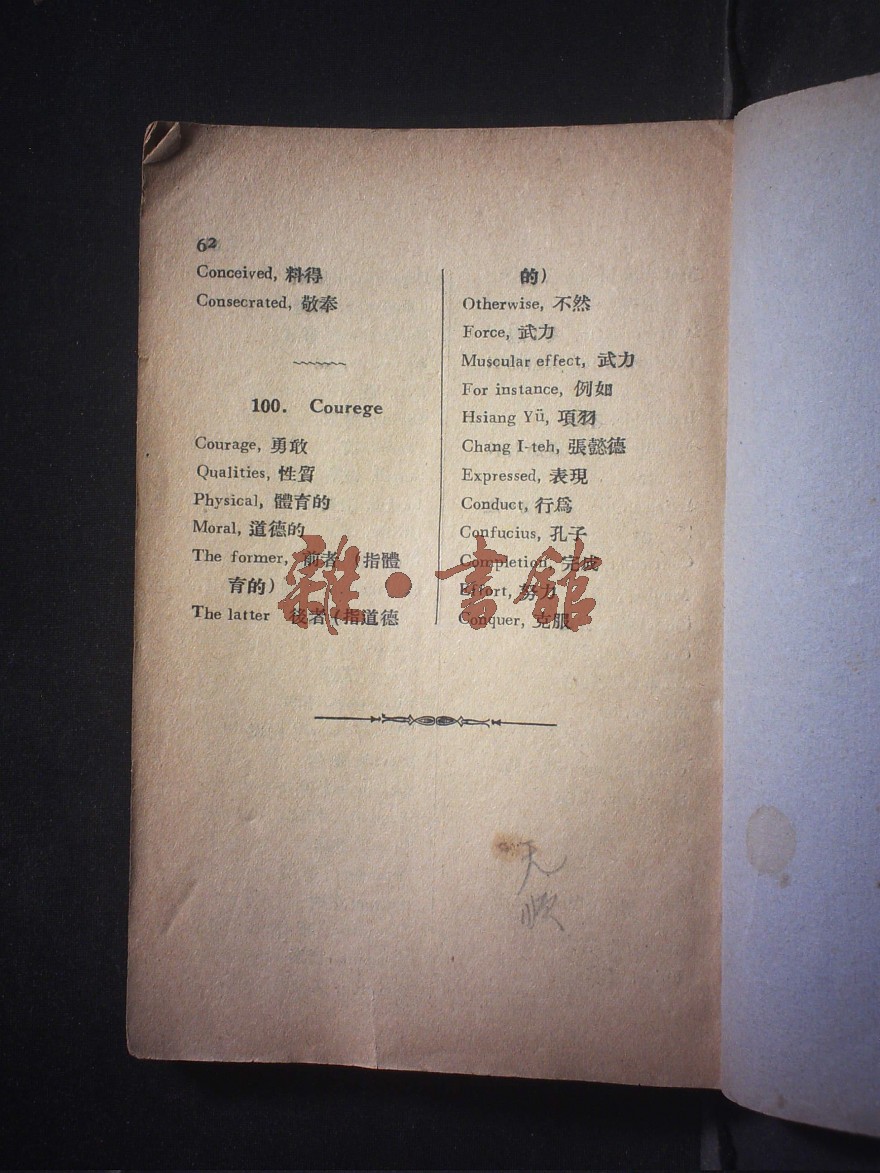 62
Conceived, 料得
Consecrated, 敬奉
100. Courege
Courage, 勇敢
Qualities, 性質
Physical, 體育的
Moral, 道德的
The former, 前者 (指體
育的)
The latter 後者 (指道德
的)
Otherwise, 不然
Force, 武力
Muscular effect, 武力
For instance, 例如
Hsiang Yü, 項羽
Chang I-teh, 張懿德
Expressed, 表現
Conduct, 行爲
Confucius, 孔子
Completion, 完成
Effort, 努力
Conquer, 克服
雜·書館
天
順